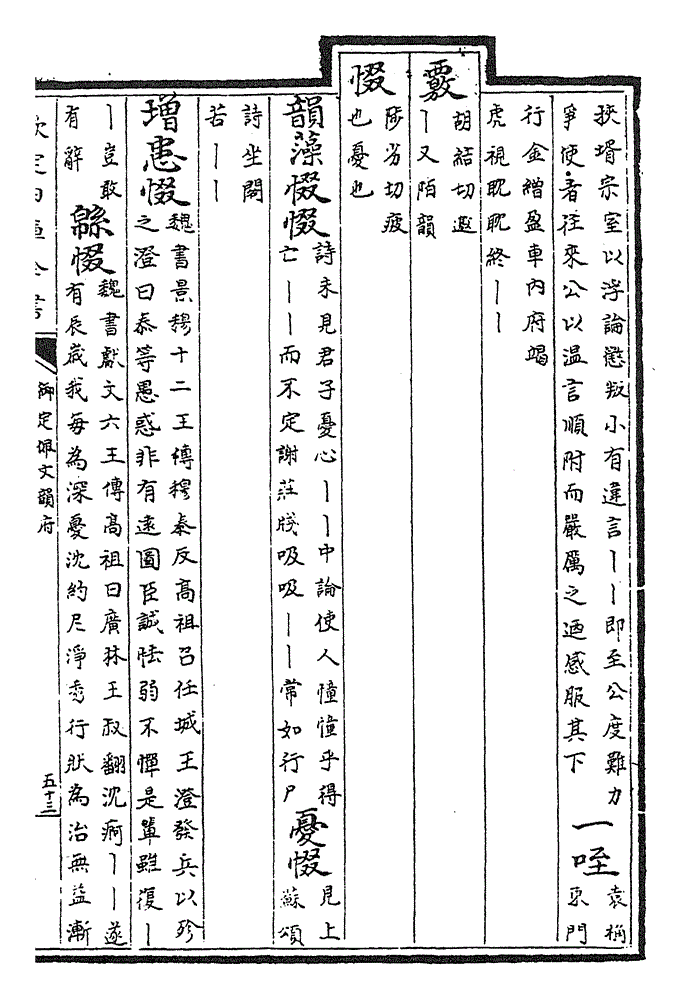 挾壻宗室以浮論懲叛小有違言丨丨即至公度難力
爭使者往來公以温言順附而嚴厲之迺感服其下
一咥
袁桷
東門
行金繒盈車内府竭
虎視眈眈終丨丨
覈
胡結切遬
丨又陌韻
惙
陟劣切疲
也憂也
韻藻惙惙
詩未見君子憂心丨丨中論使人憧憧乎得
亡丨丨而不定謝莊牋吸吸丨丨常如行尸
憂惙
見上
蘇頌
詩坐閣
若丨丨
增恚惙
魏書景穆十二王傳穆泰反高祖召任城王澄發兵以殄
之澄曰泰等愚惑非有遠圖臣誠怯弱不憚是輩雖復丨
丨豈敢
有辭
緜惙
魏書獻文六王傳高祖曰廣林王叔翻沈痾丨丨遂
有辰歲我每為深憂沈約尼淨秀行狀為治無益漸
御定佩文韻府
五十三